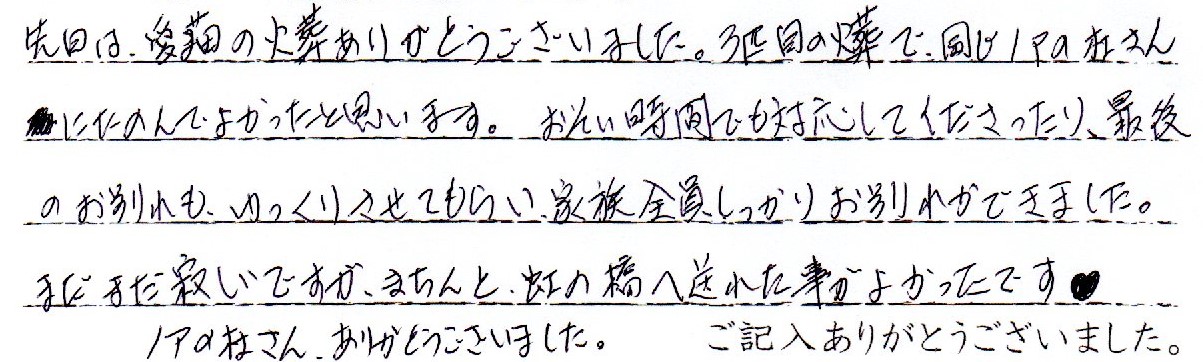 先日は、愛猫の火葬ありがとうございました。3匹目の火葬で、同じノアの杜さん
にたのんでよかったと思います。おそい時間でも対応してくださったり、最後
のお別れも、ゆっくりさせてもらい、家族全員しっかりお別れができました。
まだまだ寂しいですが、きちんと、虹の橋へ送れた事がよかったです♥
ノアの杜さん、ありがとうございました。 ご記入ありがとうございました。